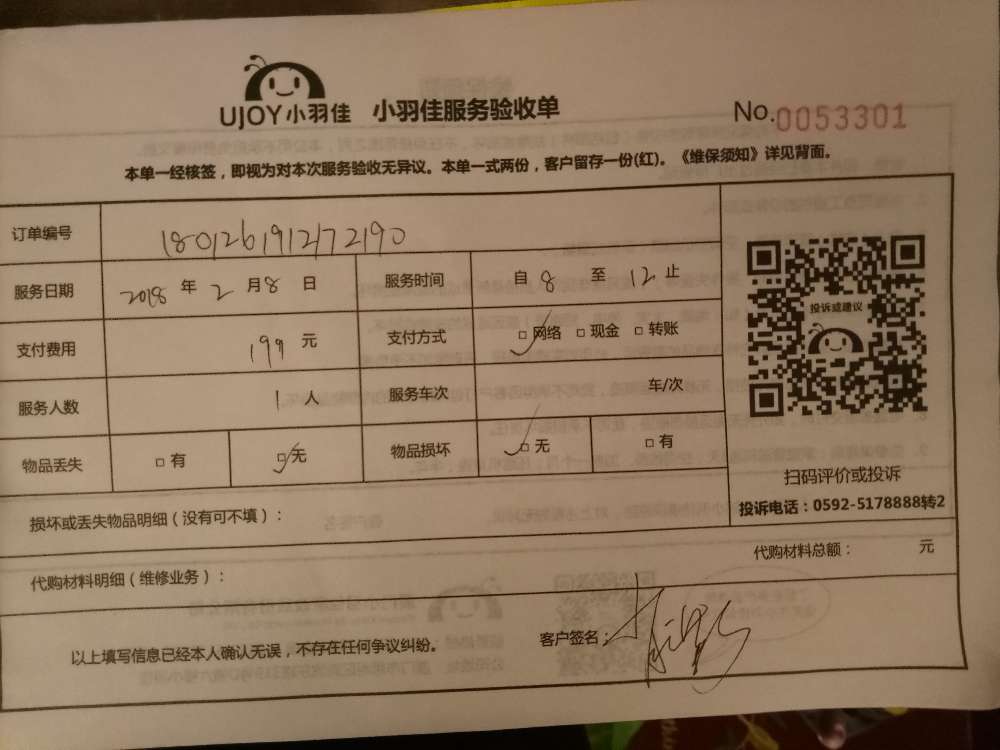 UJOY小羽佳 小羽佳服务验收单 No.0053301
本单一经核签，即视为对本次服务验收无异议。本单一式两份，客户留存一份(红)。《维保须知》详见背面。
订单编号 180126191272190
服务日期 2018 年 2 月 8 日 服务时间 自 8 至 12 止
支付费用 199 元 支付方式 □网络 □现金 □转账
服务人数 1 人 服务车次 车/次
物品丢失 □有 □无 物品损坏 □无 □有
投诉或建议
扫码评价或投诉
投诉电话：0592-5178888转2
损坏或丢失物品明细（没有可不填）：
代购材料明细（维修业务）： 代购材料总额： 元
以上填写信息已经本人确认无误，不存在任何争议纠纷。 客户签名：